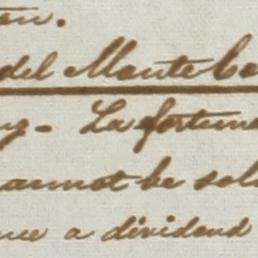 del Monte Co
La fortuna
cannot be sol
a dividend